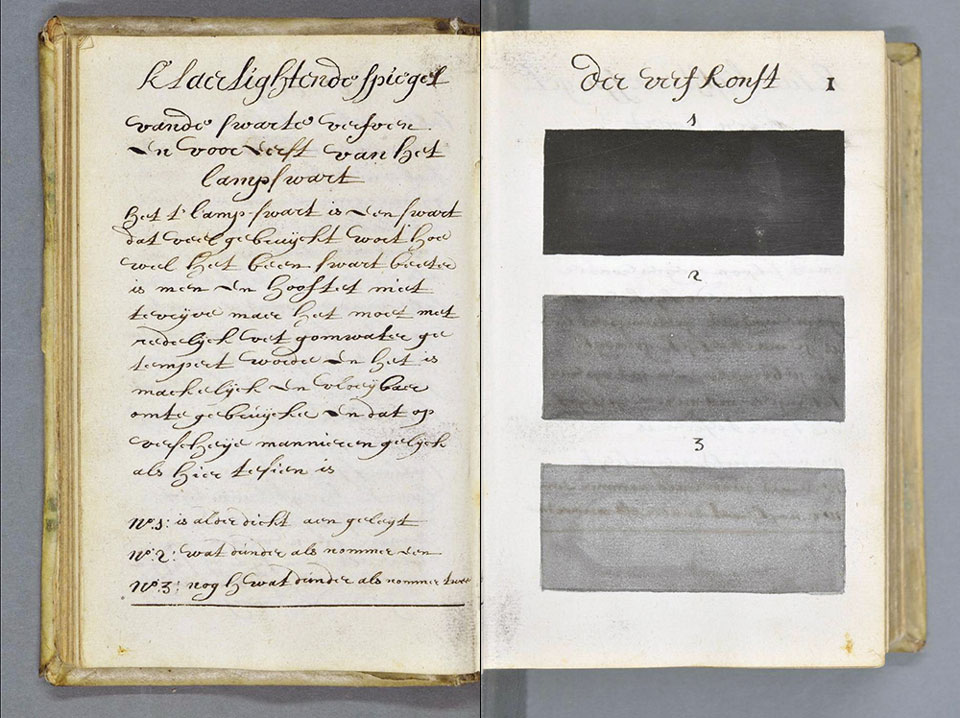 Klaerlightende spiegel
vande swarte verfven
En voor Eerst van het
lampswart
het t' lamp-swart is Een swart
dat veel gebruÿckt wort hoe
wel het been swart beeter
is men En hooft et niet
te vrÿve maer het moet met
redelÿck vet gomwater ge
tempert worde En het is
mackelÿck En vloeÿbaer
omte gebruÿcke En dat op
verscheÿe mannieren gelÿck
als hier te sien is
No. 1: is alder dickt aen gelegt
No. 2: wat dunder als nommer Een
No. 3: nog h wat dunder als nommer twee
der verf konst 1
1
2
3